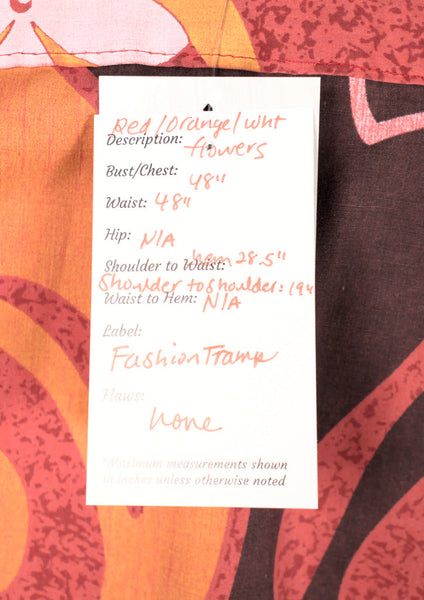 Red/Orange/wht
Description: flowers
Bust/Chest: 48"
Waist: 48"
Hip: N/A
Shoulder to Waist: hem 28.5"
Shoulder to shoulder: 19"
Waist to Hem: N/A
Label:
Fashion Tramp
Flaws:
none
*Maximum measurements shown
in inches unless otherwise noted